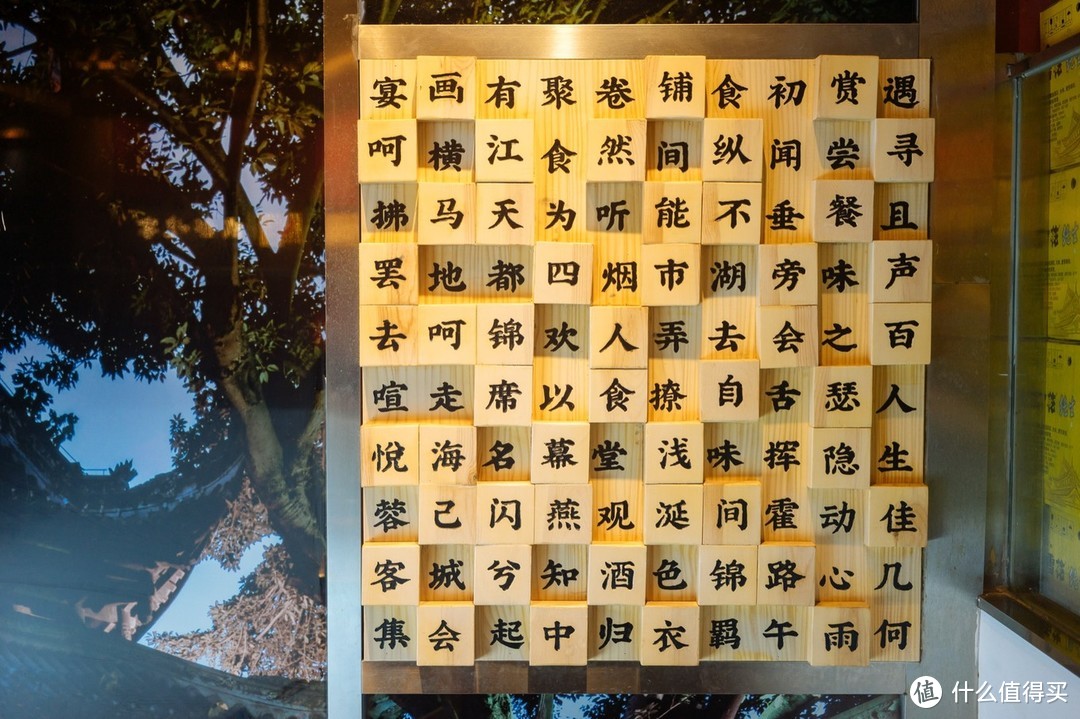 宴画有聚卷铺食初赏遇
呵横江食然间纵闻尝寻
马天为听能不垂餐且
罢地都四烟市湖旁味声
去呵锦欢人弄去会之百
喧走席以食撩自舌瑟人
悦海名幕堂浅味挥隐生
蓉己闪燕观涎间霍动佳
客城兮知酒色锦路心几
集会起中归衣羁午雨何
值 什么值得买